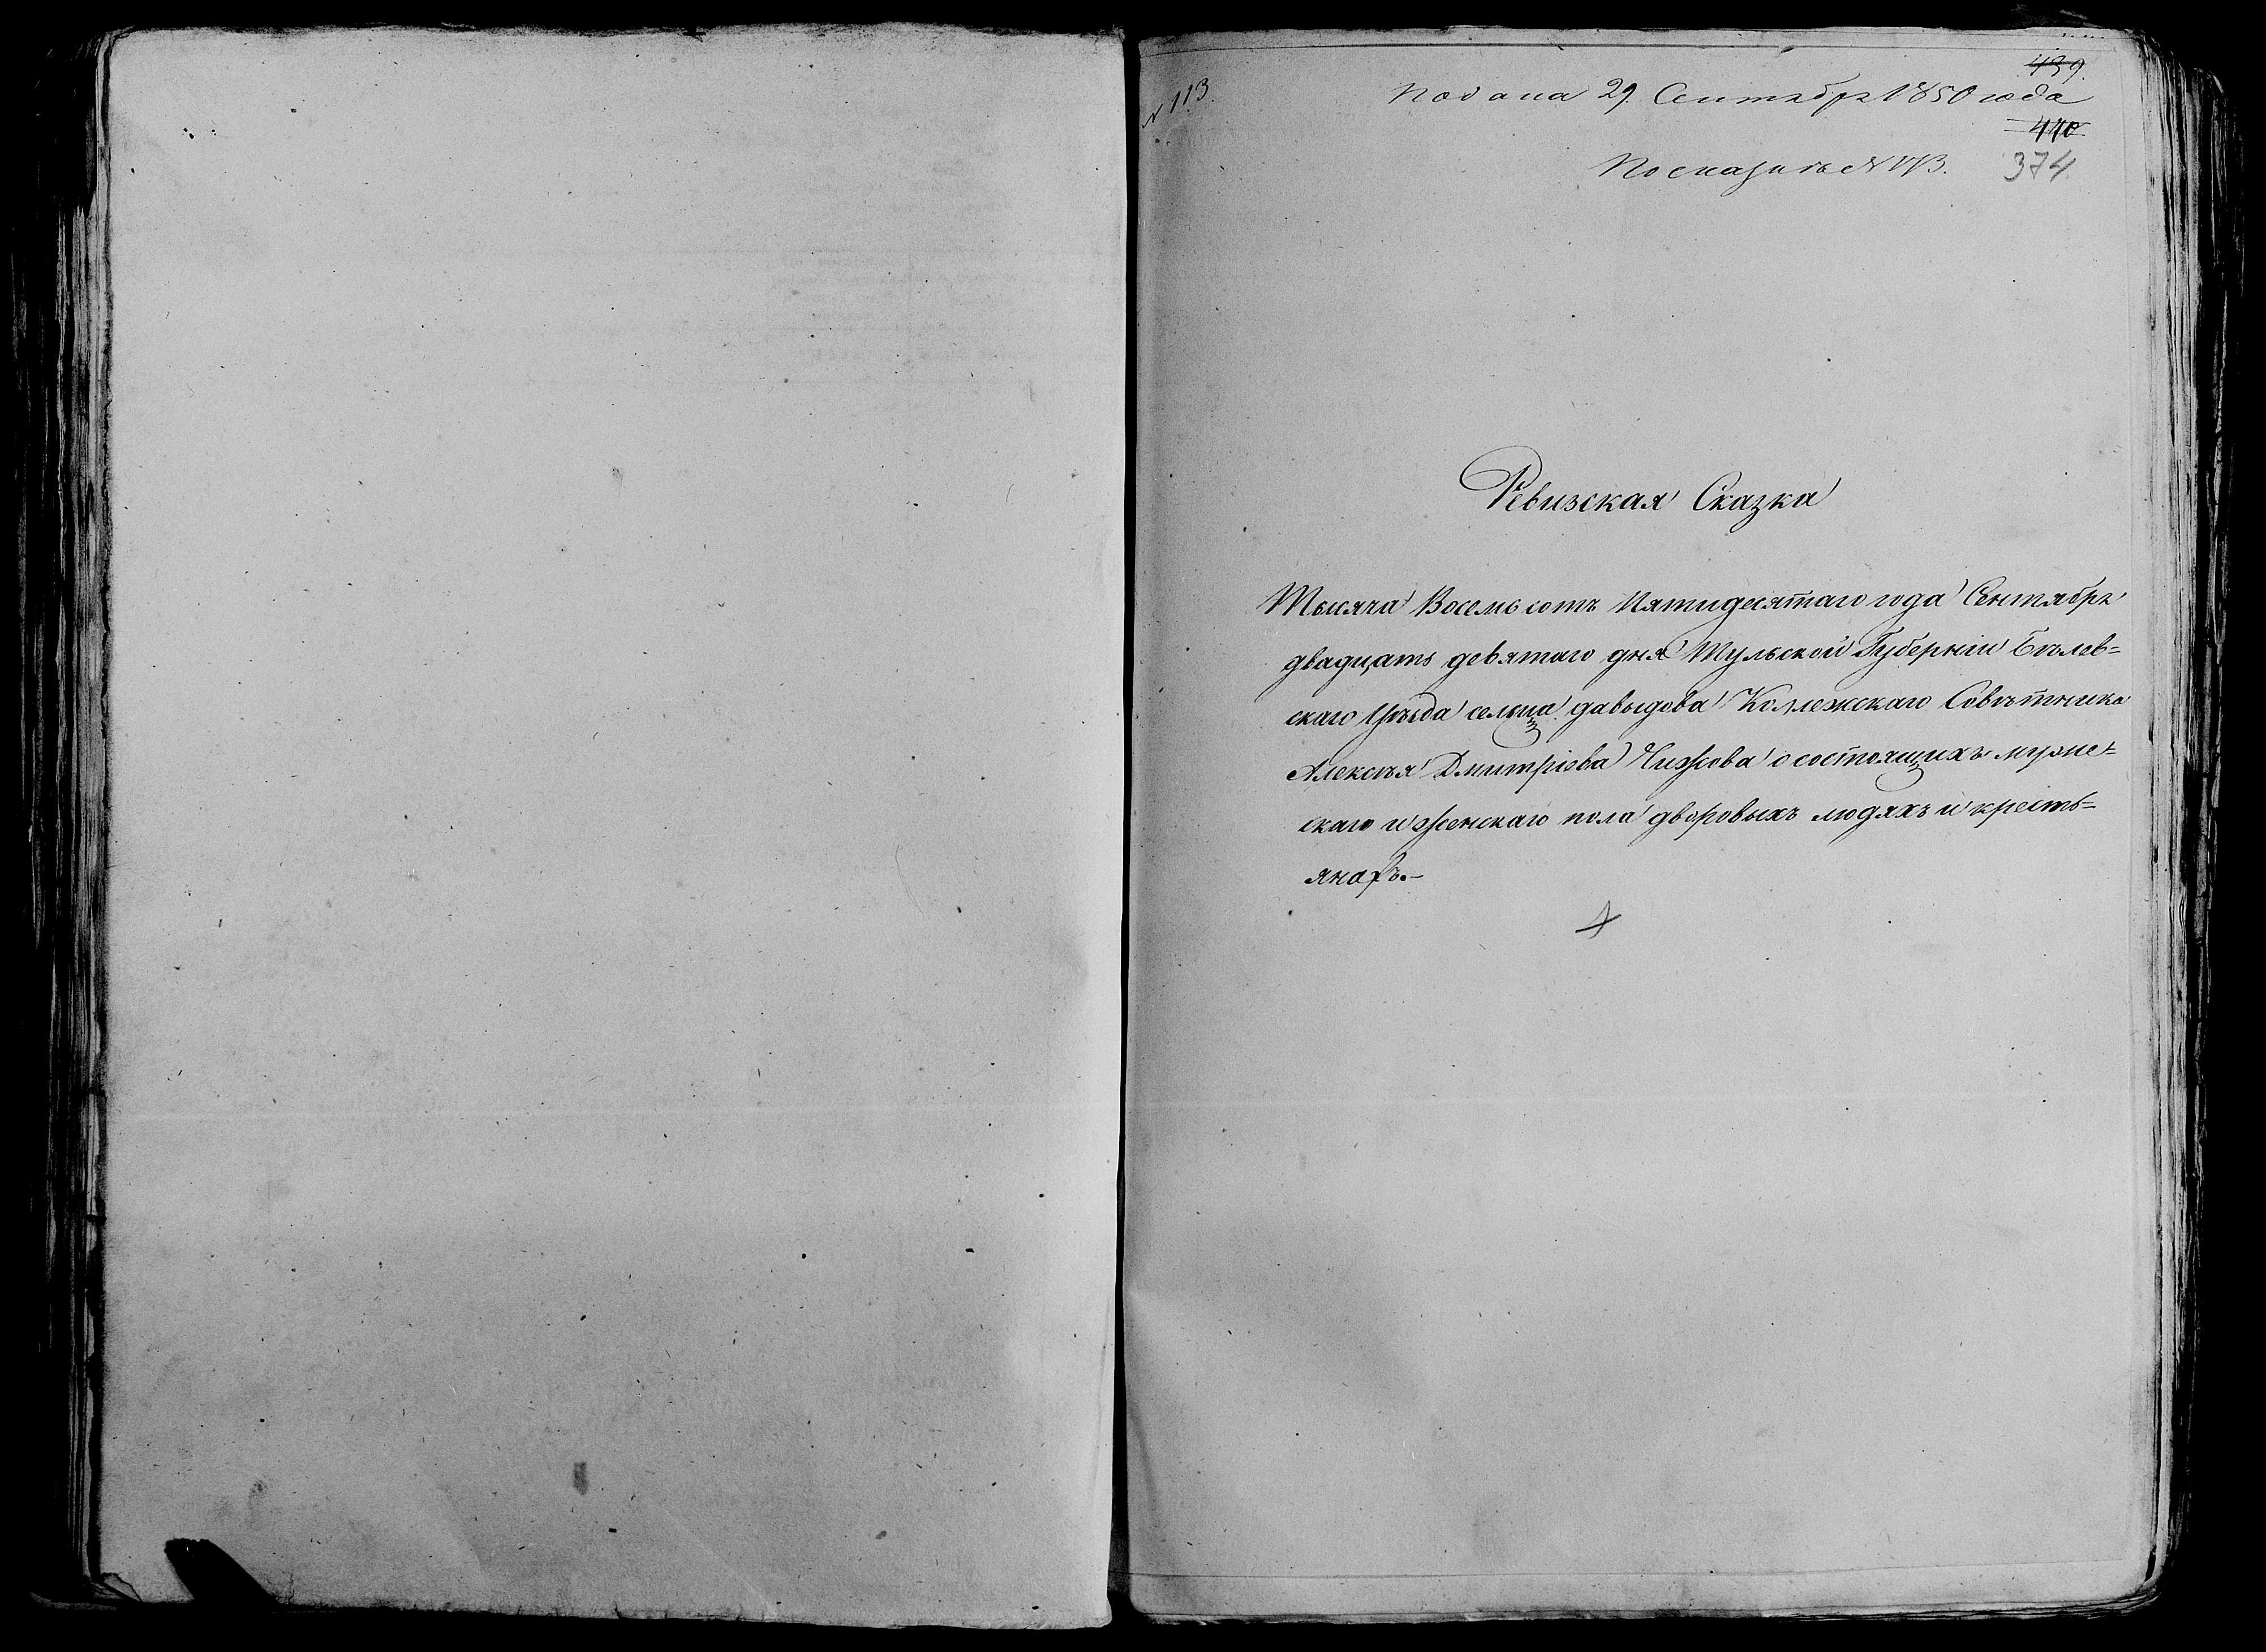 N 113.
439.
Подана 29. Сентября 1850 года
440
По описи № 113.
374
Ревизская Сказка
Тысяча Восемь сотъ Пятидесятаго года Сентября
двадцать девятаго дня Тульской Губерніи Бѣлев=
скаго Уѣзда сельца давыдова Коллежскаго Совѣтника
Алексѣя Дмитріева Чижова о состоящихъ муже=
скаго и женскаго пола дворовыхъ людяхъ и кресть=
янахъ.-